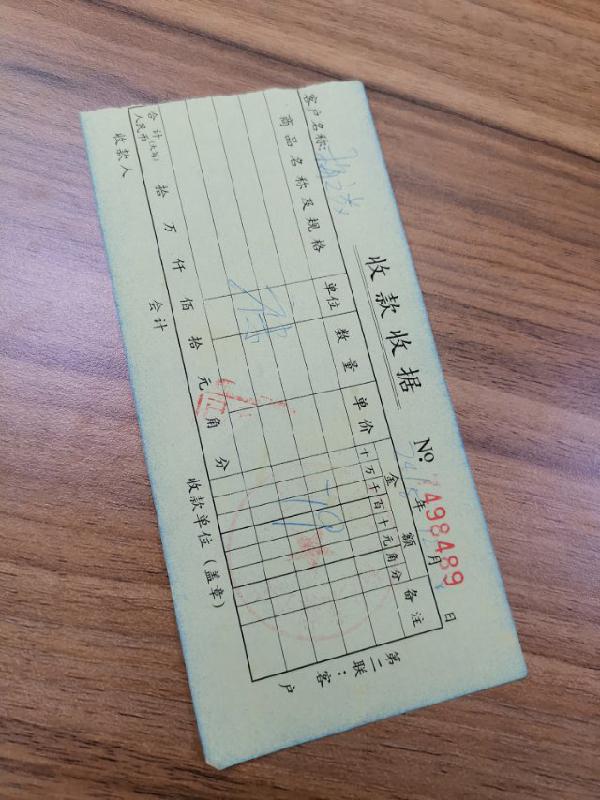 收款收据
№ 7498489
年 月 日
客户名称：
商品名称及规格 单位 数量 单价 金额 备注
十万千百十元角分
79
合计人民币(大写) 拾 万 仟 佰 拾 元 角 分
收款人 会计 收款单位（盖章）
第二联：客户